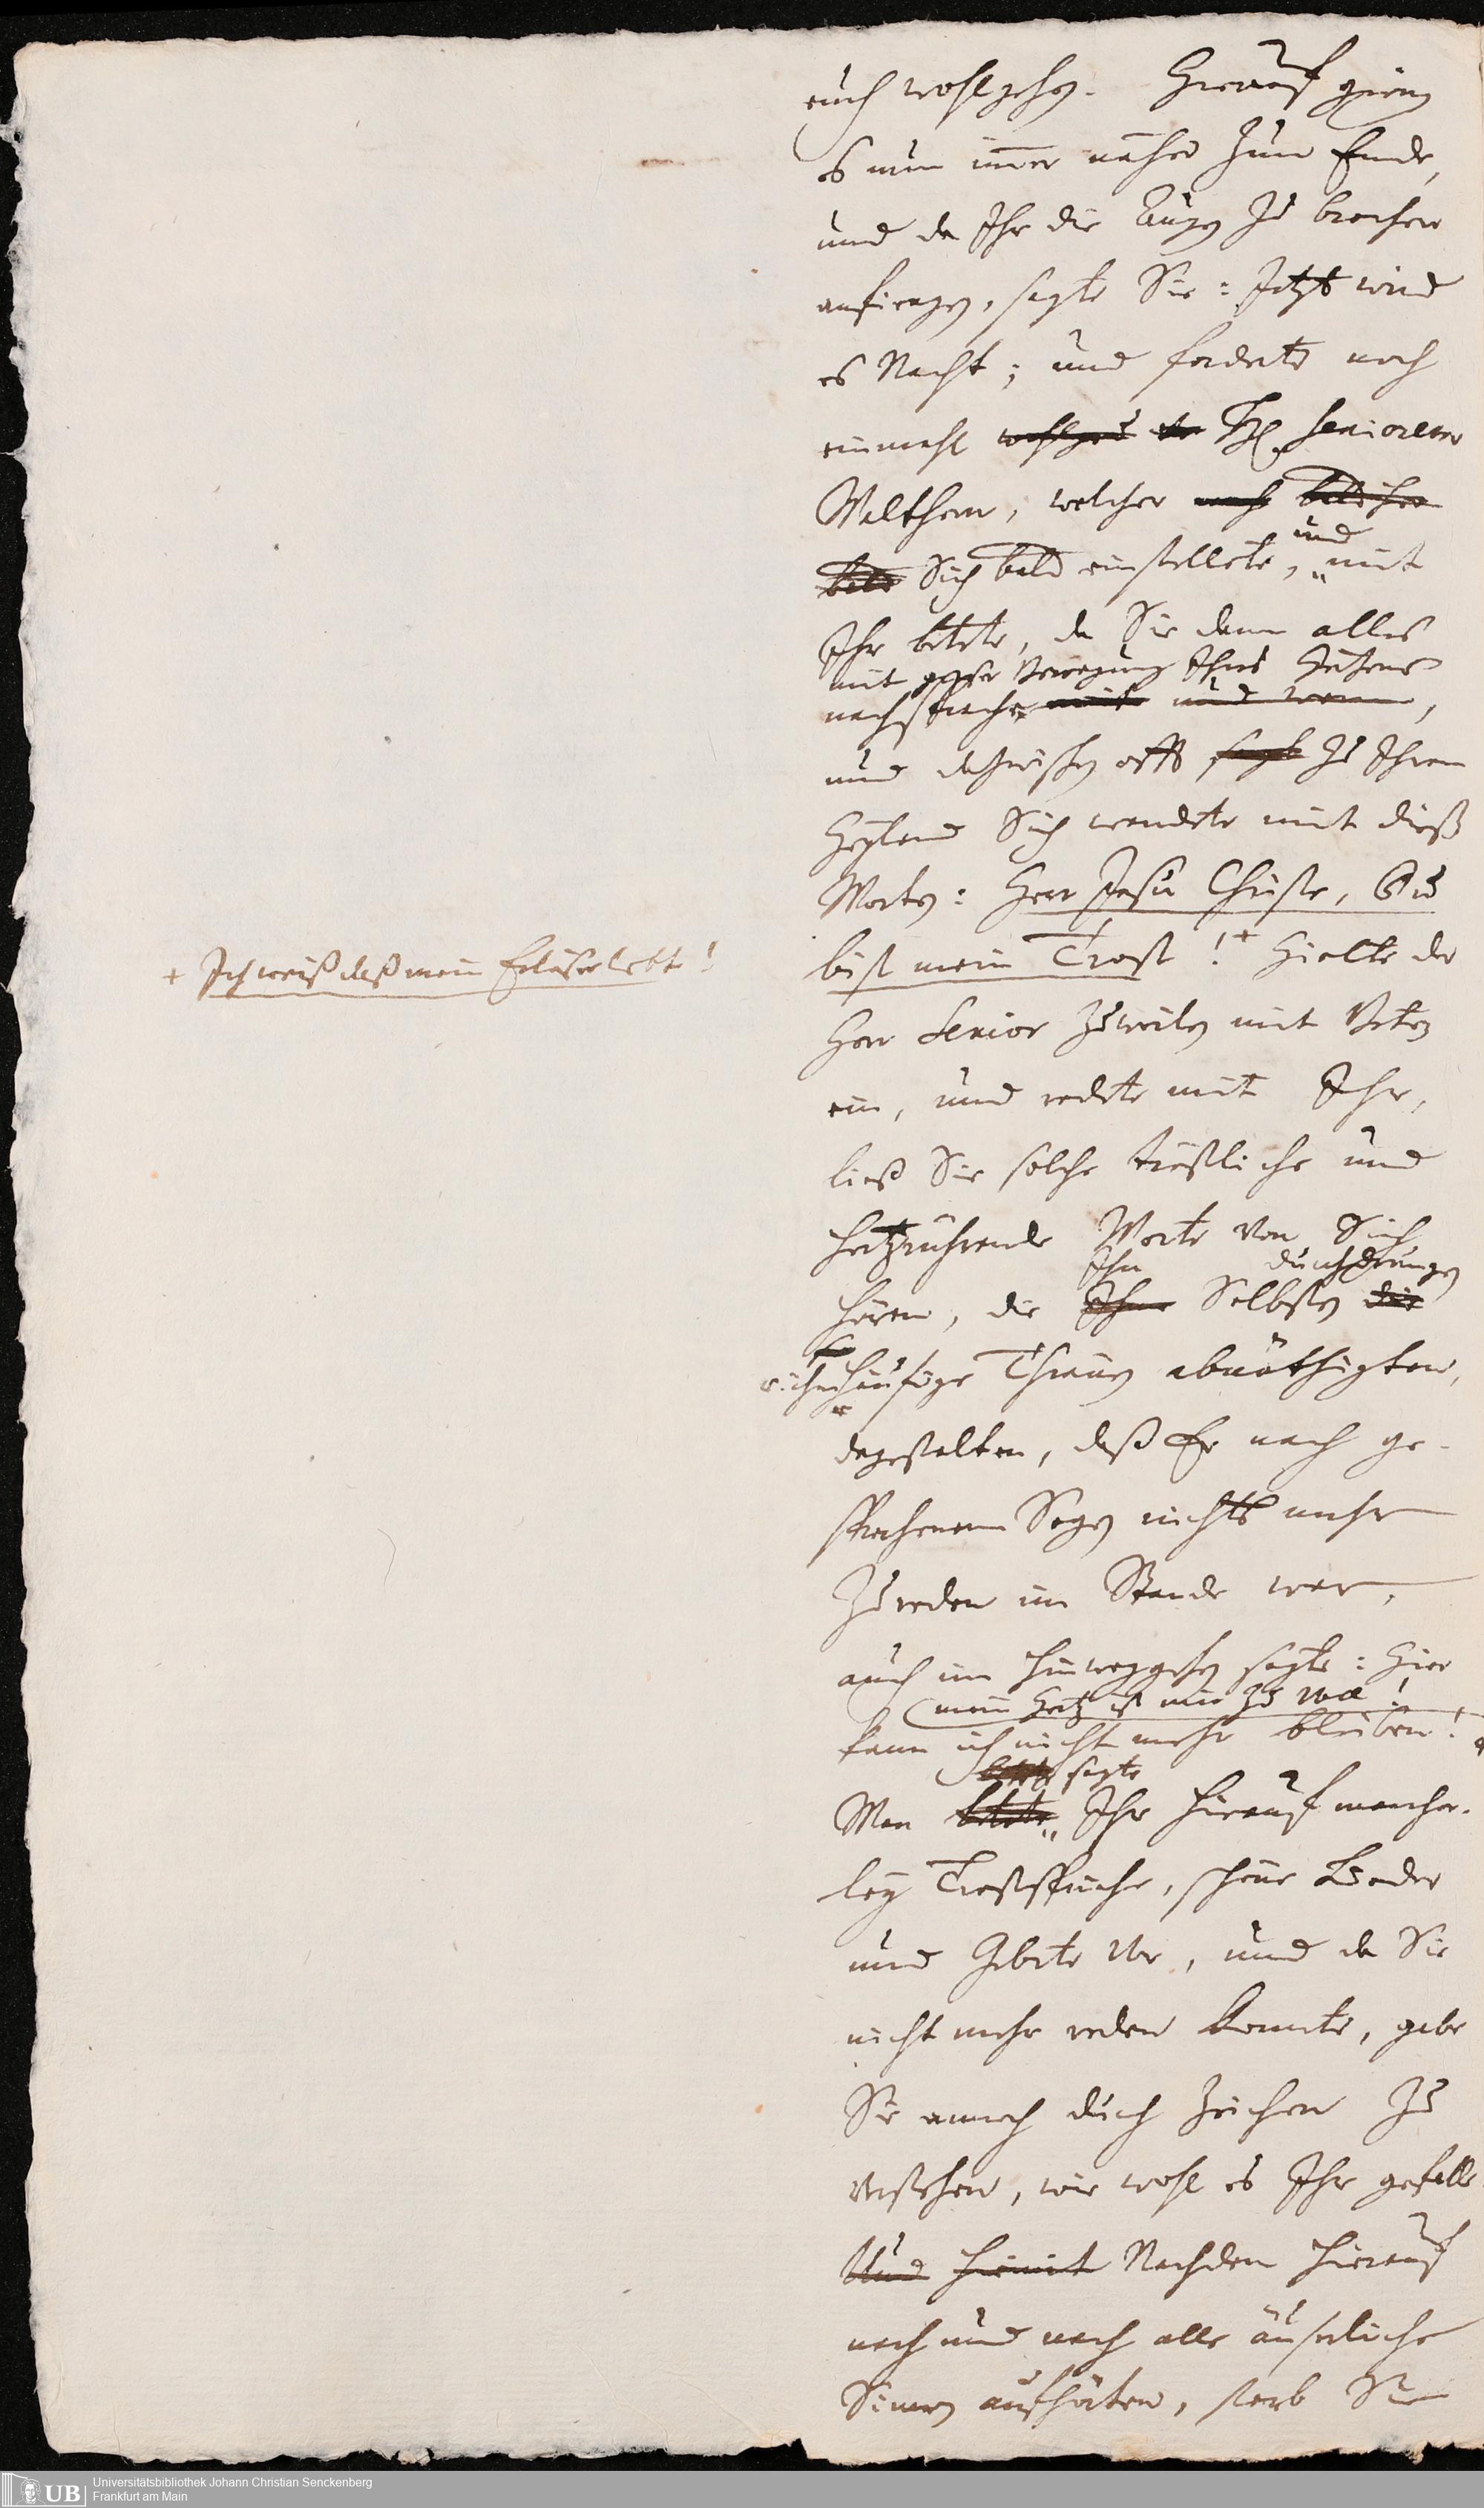 euch wohlgehen. Hierauf gieng
es nun im̄er näher zum Ende,
und da Ihr die Augen zu brechen
anfiengen, sagte Sie: Jetzt wird
es Nacht; und forderte noch
einmahl H. Seniorem
Walthern, welcher
bald Sich bald einstellete, und mit
Ihr betete, da Sie dann alles
mit großer Bewegung Ihres Hertzens
nachsprache, und,
und dazwischen offt sagte zu Ihrem
Heyland Sich wendete mit dießen
Worten: Herr Jesu Christe, Du
bist mein Trost! + Hielte der
+ Ich weiß daß mein Erlöser lebt!
Herr Senior zuweilen mit Beten
ein, und redete mit Ihr,
ließ Sie solche tröstliche und
hertzrührende Worte von Sich
Ihn durchdrungen
hören, die Ihme Selbsten die
häufige Thränen abnöthigten,
dergestalten, daß Er nach ge-
sprochenem Segen nichts mehr
zu reden im Stande war,
auch im hinweggehen sagte: Hier
mein Hertz ist mir zu voll!
kann ich nicht mehr bleiben!
sagte
Man betete Ihr hierauf mancher-
ley Trostsprüche, schöne Lieder
und Gebete vor, und da Sie
nicht mehr reden konnte, gabe
Sie annoch durch Zeichen zu
verstehen, wie wohl es Ihr gefalle
Und hiemit Nachdem hierauf
nach und nach alle äuserliche
Sinnen aufhörten, starb Sie